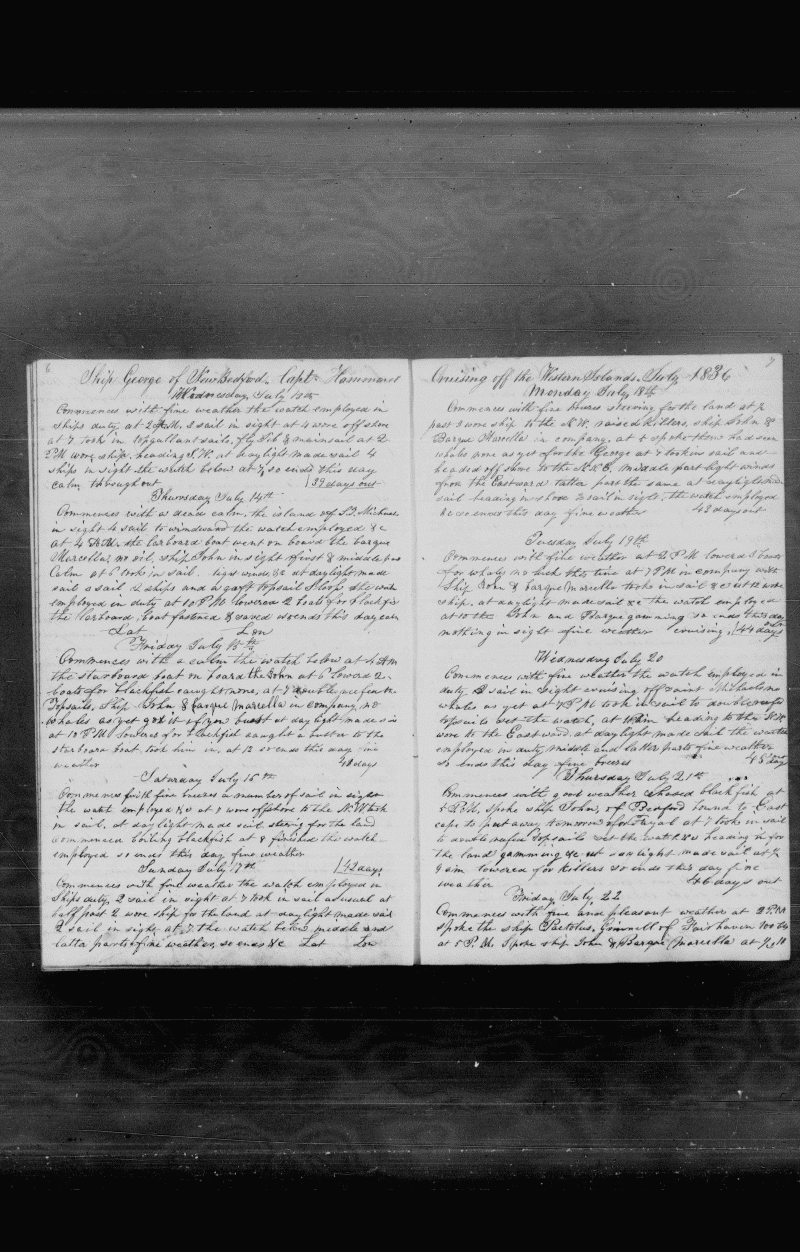 6
Ship George of New Bedford. Capt. Hammond
Wednesday July 13th
Commences with fine weather the watch employed in
ships duty at 2 P.M. 2 sail in sight at 4 wore off shore
at 7 took in topgallant sails, fly Jib & mainsail at 2
P.M wore ship. heading S.W. at daylight made sail 4
ships in sight the watch below at 7, so ends this day
calm throughout 39 days out
Thursday July 14th
Commences with a dead calm. the island of St. Michael
in sight 4 sail to windward the watch employed &c
at 4 P.M. the larboard boat went on board the barque
Marcella, no oil, ship John in sight first & middle
Calm at 6 took in sail. light winds, &c at daylight made
sail 2 sail 2 ships and a gaff topsail Sloop the watch
employed in duty at 10 P.M lowered 2 boats for blackfish
the larboard boat fastened & saved so ends this day calm
Lat Lon
Friday July 15th
Commences with a calm the watch below at 4 P.M
the starboard boat on board the John at 6 lowers 2
boats for blackfish caught none, at 7 double reef in the
Topsails, Ship John & barque Marcella in company, no
whales as yet at daylight made sail
at 10 P.M lowered for blackfish caught a to the
starboard boat took him in, at 12 so ends this day fine
weather 40 days
Saturday July 16th
Commences with fine breezes a number of sail in sight
the watch employed &c at 7 wore offshore to the N.W took
in sail, at daylight made sail steering for the land
commenced boiling blackfish at 8 finished the watch
employed so ends this day fine weather
Sunday July 17th 42 days
Commences with fine weather the watch employed in
Ships duty, 2 sail in sight at 7 took in sail as usual at
half past 2 wore ship for the land at daylight made sail
2 sail in sight at 7 the watch below middle and
latta parts fine weather, so ends &c Lat Lon
7
Cruising off the Western Islands. July 1836
Monday July 18th
Commences with fine breezes steering for the land at ½
past 3 wore ship to the N.W. raised killers, ship John &
Barque Marcella in company. at 5 spoke them had seen
whales none as yet for the George at 7 took in sail and
headed off shore to the N.N.E. middle part light winds
from the Eastward latter part the same at daylight made
sail heading in shore 2 sail in sight, the watch employed
&c so ends this day fine weather 43 days out
Tuesday July 19th
Commences with fine weather at 2 P.M lowered 3 boats
for whales no luck this time at 7 P.M in company with
Ship John & barque Marcella took in sail &c at 12 wore
ship. at daylight made sail &c the watch employed
at 10 the John and Barque gamming so ends this day
nothing in sight fine weather cruising, 44 days
Wednesday July 20
Commences with fine weather the watch employed in
duty 2 sail in sight cruising off saint Michaels no
whales as yet at 7 P.M took in sail to double reefs
topsails set the watch, at heading to the N.W
wore to the Eastward. at daylight made sail the watch
employed in duty, middle and latter parts fine weather
So ends this day fine breezes 45 days
Thursday July 21st
Commences with good weather Chased blackfish at
5 P.M. spoke ship John, of Bedford bound to East
cape to put away tomorrow for Fayal at 7 took in sail
to double reefed topsails set the watch &c heading in for
the land gamming &c at daylight made sail at ½
9 am lowered for killers so ends this day fine
weather 46 days out
Friday July 22
Commences with fine and pleasant weather at 2 P.M
Spoke the ship Pactolus, Grinnell of Fairhaven 100 bbls
at 5 P.M. Spoke ship John & Barque Marcella at ½ 10